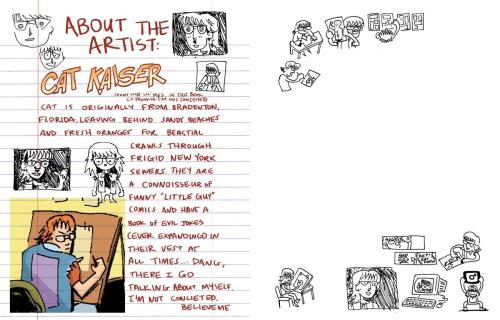 ABOUT THE
ARTIST:
CAT KAISER
CAT IS ORIGINALLY FROM BRADENTON,
FLORIDA, LEAVING BEHIND SANDY BEACHES
AND FRESH ORANGES FOR BEACTIAL
CRAWLS THROUGH
FRIGID NEW YORK
SEWERS. THEY ARE
A CONNOISSEUR OF
FUNNY "LITTLE GUY"
COMICS AND HAVE A
BOOK OF EVIL JOKES
(EVER EXPANDING) IN
THEIR VEST AT
ALL TIMES... DANG,
THERE I GO
TALKING ABOUT MYSELF.
I'M NOT CONCIETED.
BELIEVE ME